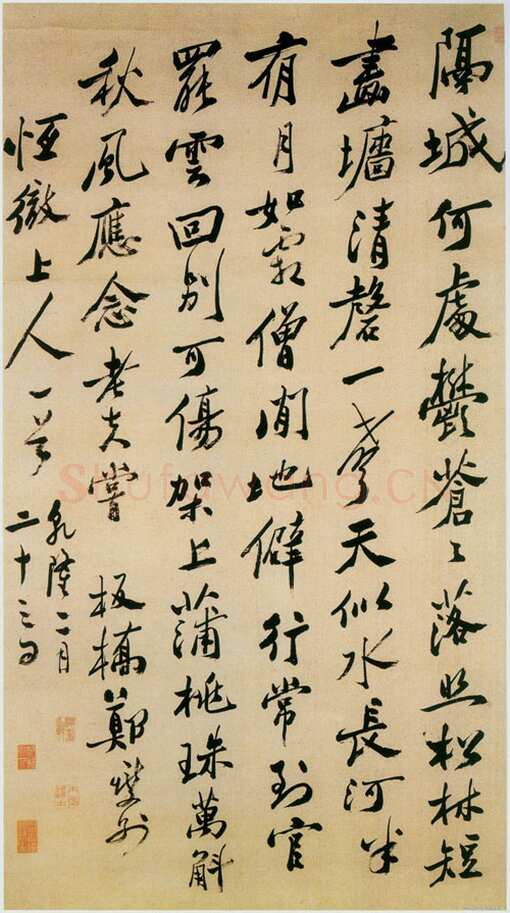 隔城何處鬱蒼々落照松林短
畫墻清磬一聲天似水長河半
夜月如霜僧閒地僻行常到官
罷雲回別可傷架上蒲桃珠萬斛
秋風應念老夫嘗 板橋鄭燮別
恆徹上人一首
乾隆二月
二十三日
Shufawang.CN